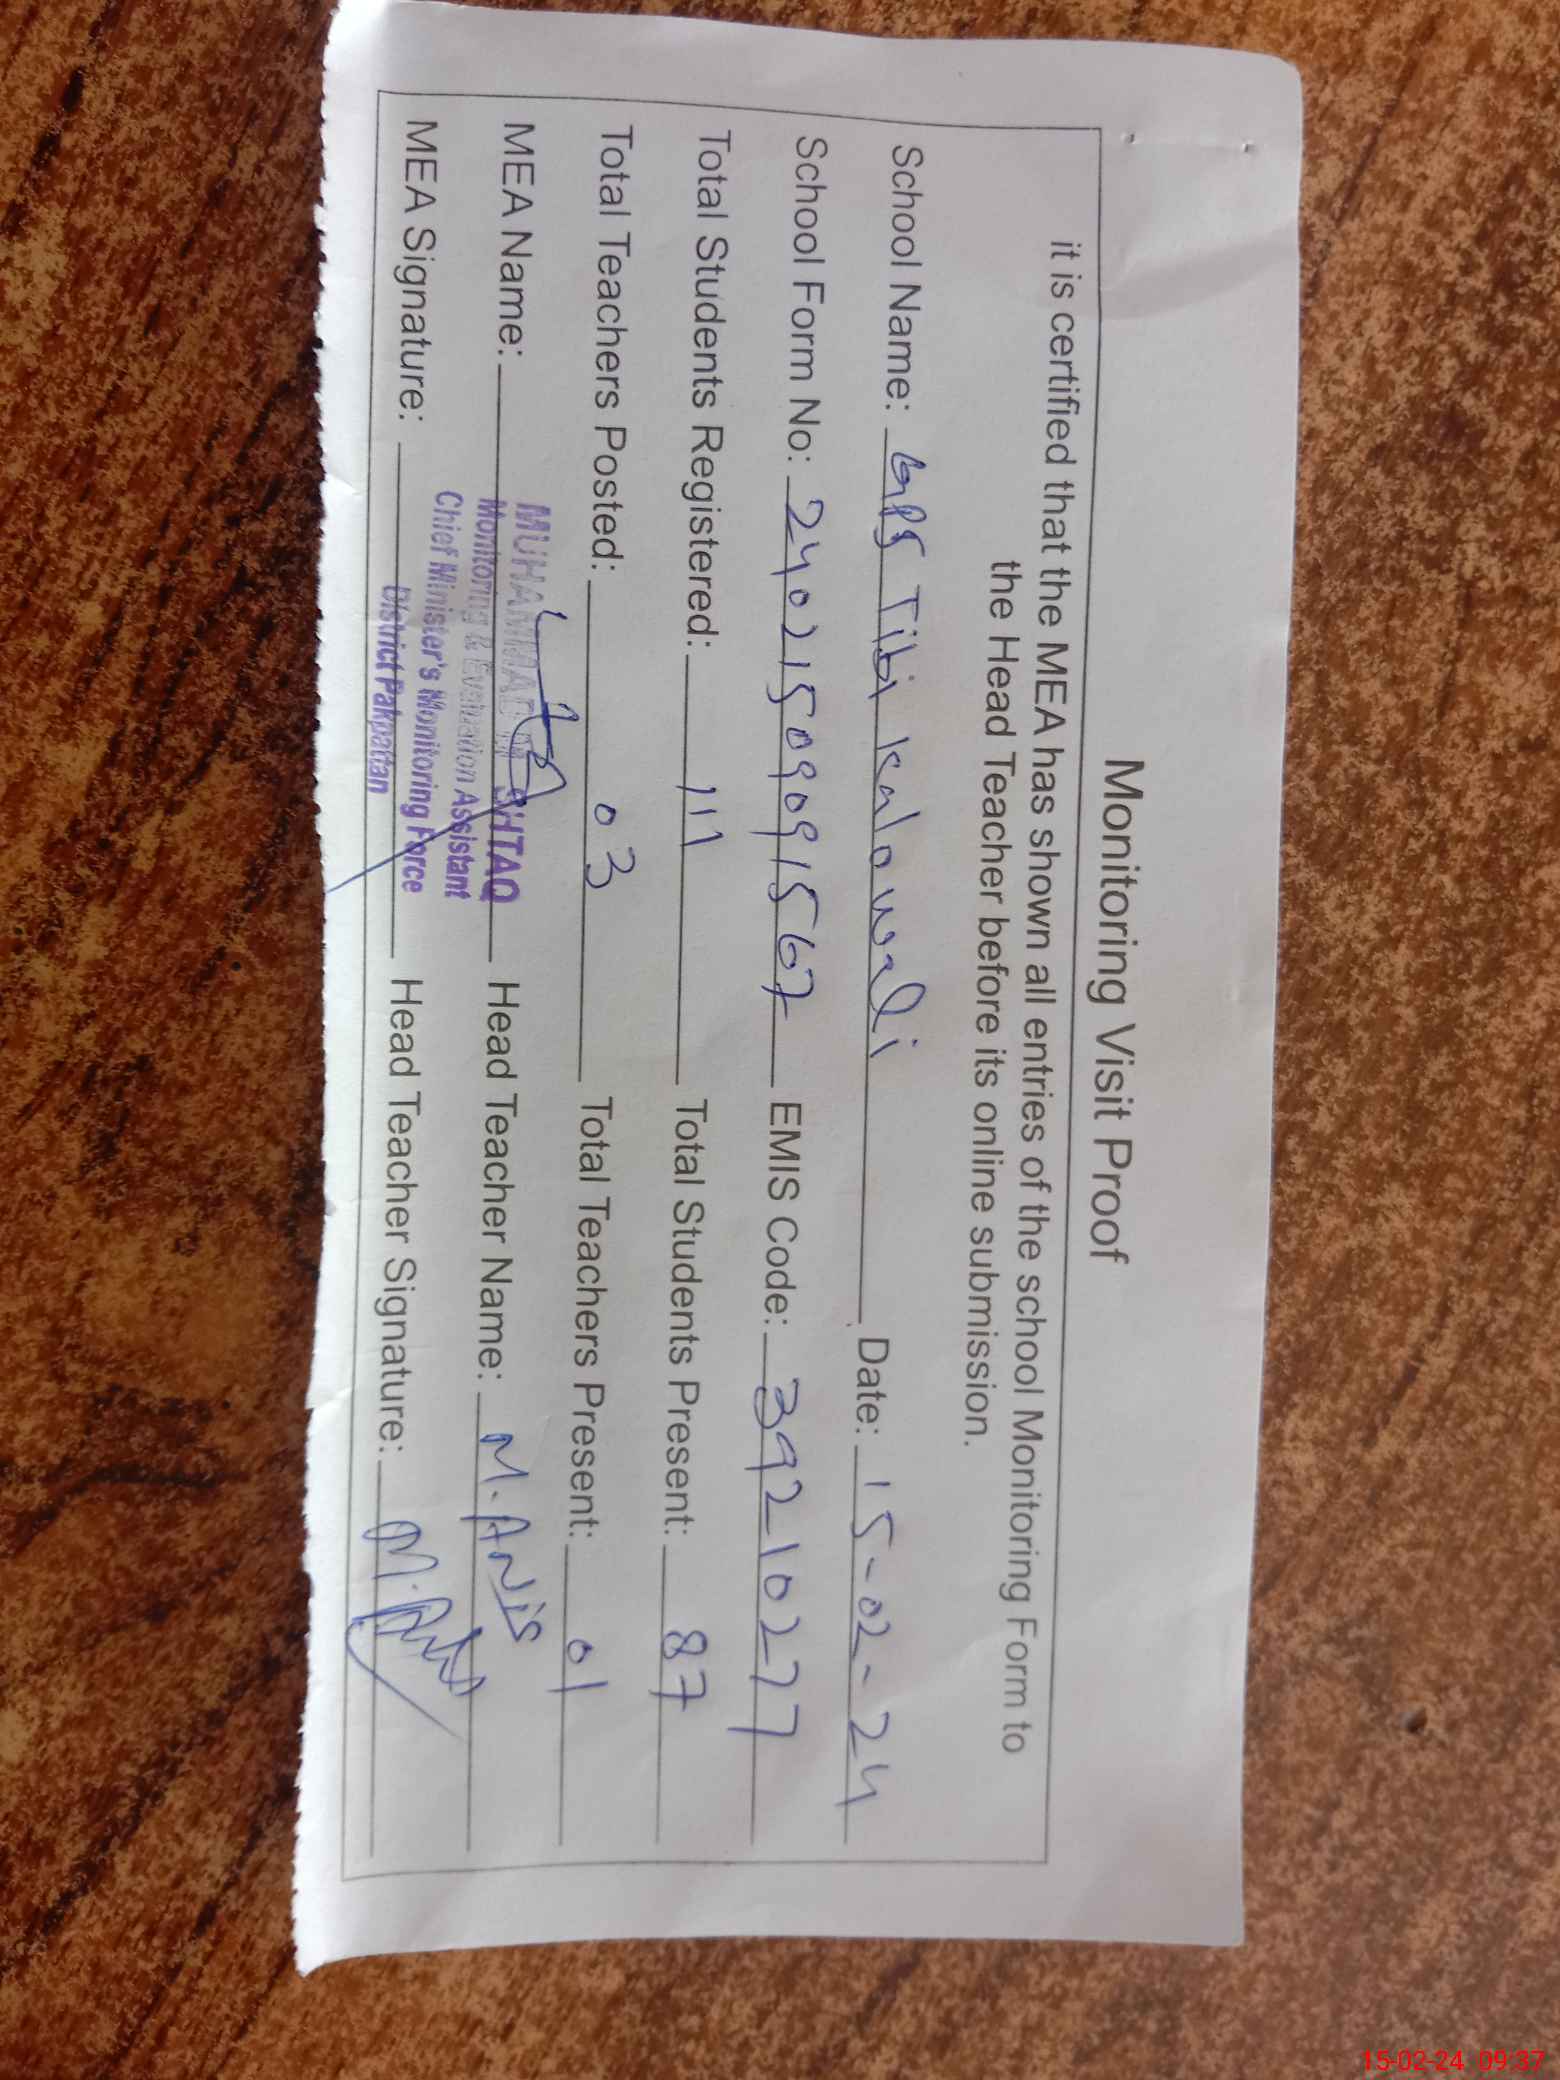 Monitoring Visit Proof
it is certified that the MEA has shown all entries of the school Monitoring Form to
the Head Teacher before its online submission.
School Name: GPS Tibi Kalowali Date: 15-02-24
School Form No: 24021509091567 EMIS Code: 39210277
Total Students Registered: 111 Total Students Present: 87
Total Teachers Posted: 03 Total Teachers Present: 01
MEA Name: MUHAMMAD MUSHTAQ Head Teacher Name: M. ANIS
Monitoring & Evaluation Assistant
Chief Minister's Monitoring Force
District Pakpattan
MEA Signature: Head Teacher Signature:
15-02-24 09:37